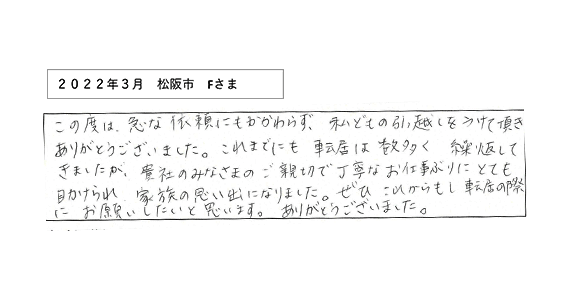 2022年3月 松阪市 Fさま
この度は、急な依頼にもかかわらず、私どもの引越しをうけて頂き
ありがとうございました。これまでにも転居は数多く繰返して
きましたが、貴社のみなさまのご親切で丁寧なお仕事ぶりにとても
助けられ、家族の思い出になりました。ぜひこれからもし転居の際
に お願いしたいと思います。ありがとうございました。